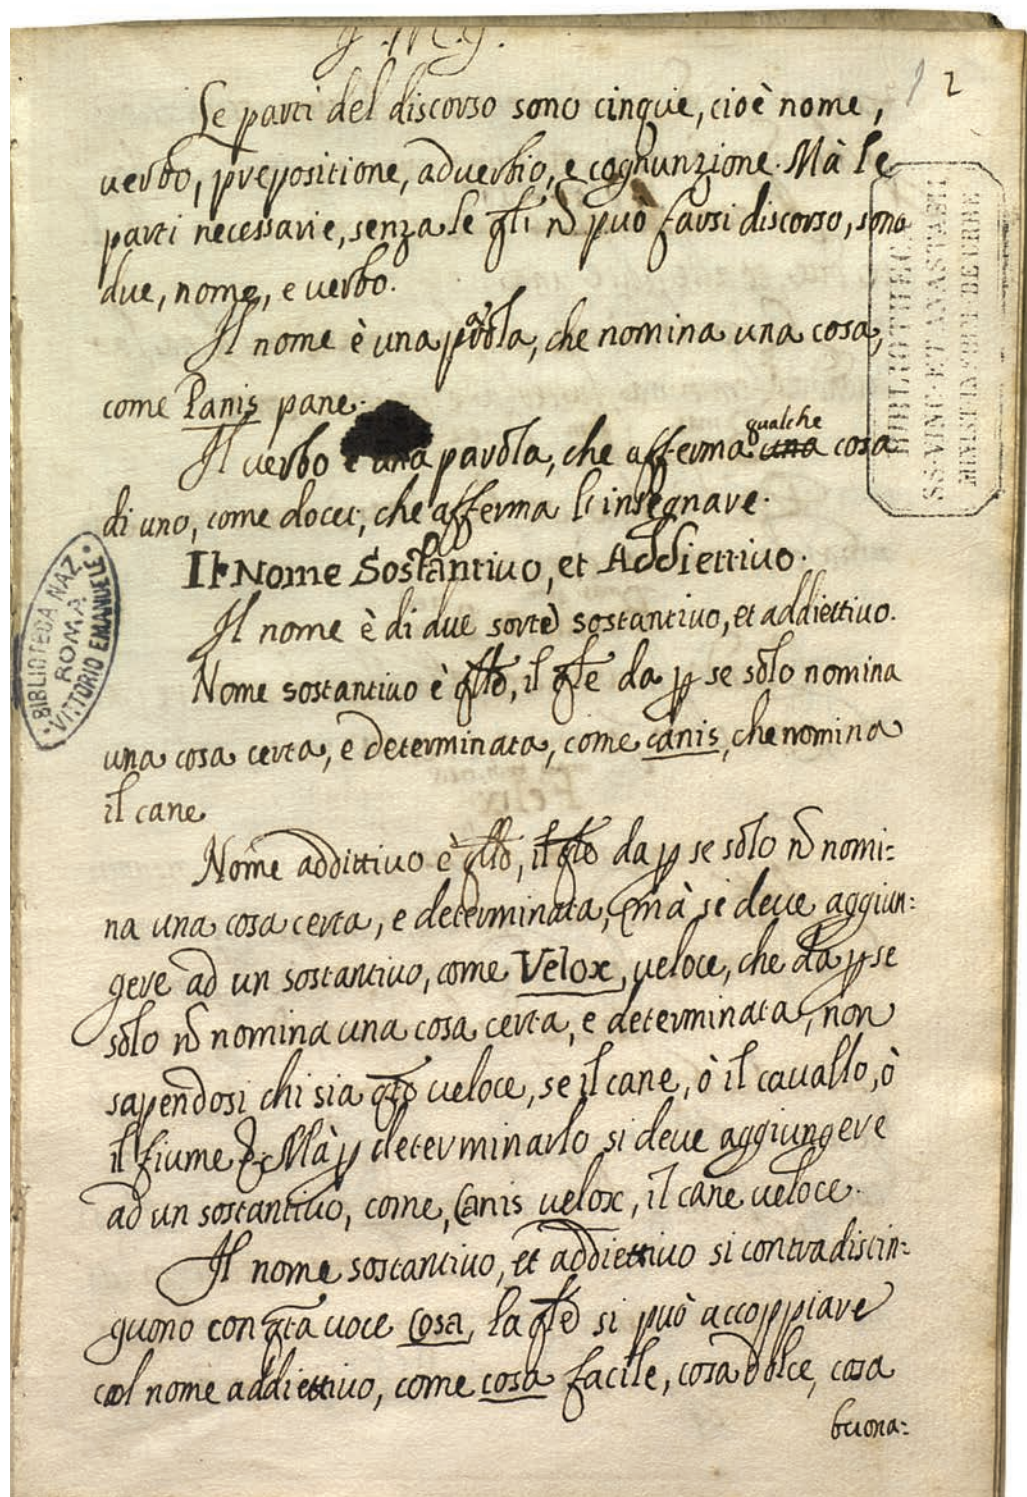 J. M. J.
1 2
Le parti del discorso sono cinque, cioè nome,
uerbo, prepositione, aduerbio, e cognunzione. Mà le
parti necessarie, senza le qli nõ può farsi discorso, sono
due, nome, e uerbo.
Il nome è una parola, che nomina una cosa,
come Panis pane.
qualche
Il uerbo è una parola, che afferma una cosa
di uno, come docet, che afferma l'insegnare.
Il Nome Sostantiuo, et Addiettiuo.
Il nome è di due sorte sostantiuo, et addiettiuo.
Nome sostantiuo è qllo, il qle da p se solo nomina
una cosa certa, e determinata, come canis, che nomina
il cane
Nome addittiuo è qllo, il qle da p se solo nõ nomi:
na una cosa certa, e determinata, mà si deue aggiun:
gere ad un sostantiuo, come Velox, ueloce, che da p se
solo nõ nomina una cosa certa, e determinata, non
sapendosi chi sia qto ueloce, se il cane, ò il cauallo, ò
il fiume &. Mà p determinarlo si deue aggiungere
ad un sostantiuo, come, Canis uelox, il cane ueloce.
Il nome sostantiuo, et addiettiuo si contradistin:
guono con qta uoce Cosa, la qle si può accoppiare
col nome addiettiuo, come cosa facile, cosa dolce, cosa
buona:
BIBLIOTHECA
SS. VINC. ET ANASTASII
BIBLIOTECA NAZ.
ROMA
VITTORIO EMANUELE